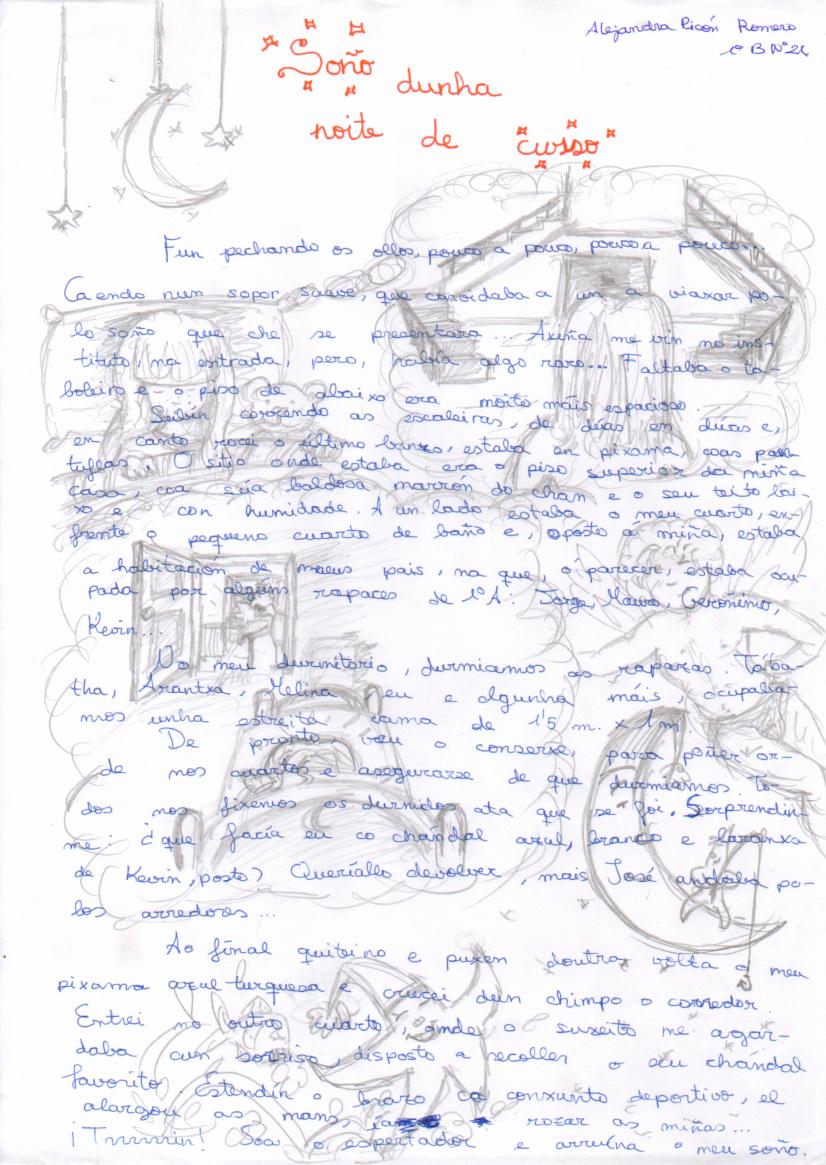 Alejandra Picón Romero
1º B Nº 21
Soño dunha
noite de curso
Fun pechando os ollos, pouco a pouco, pouco a pouco...
Caendo nun sopor suave, que convidaba a un a viaxar po-
lo soño que che se presentara... Axiña me vin no ins-
tituto, na entrada, pero, había algo raro... Faltaba o ta-
boleiro e o piso de abaixo era moito máis espacioso.
Subín correndo as escaleiras, de dúas en dúas e,
en canto rocei o último banzo, estaba en pixama, coas pan
tuflas. O sitio onde estaba era o piso superior da miña
casa, coa súa baldosa marrón do chan e o seu teito bai-
xo e con humidade. A un lado estaba o meu cuarto, en-
frente o pequeno cuarto de baño e, oposto á miña, estaba
a habitación de meus pais, na que, o parecer, estaba ocu-
pada por alguns rapaces de 1ºA: Jorge, Mauro, Gerónimo,
Kevin...
No meu durmitorio, durmiamos as rapazas. Tába-
tha, Arantxa, Melina, eu e algunha máis, ocupaba-
mos unha estreita cama de 1'5 m. x 1m.
De pronto, veu o conserxe, para poñer or-
de nos cuartos e asegurarse de que durmiamos. To-
dos nos fixemos os durmidos ata que se foi. Sorprendín-
me: ¿que facía eu co chandal azul, branco e laranxa
de Kevin, posto? Queríallo devolver, mais José andaba po-
los arredores...
Ao final quiteino e puxen doutra volta o meu
pixama azul turquesa e crucei dun chimpo o corredor.
Entrei no outro cuarto, onde o suxeito me agar-
daba cun sorriso, disposto a recoller o seu chándal
favorito. Estendín o brazo co conxunto deportivo, el
alargou as mans, ía rozar as miñas...
¡Trrrrrin! Soa o espertador e arruína o meu soño.